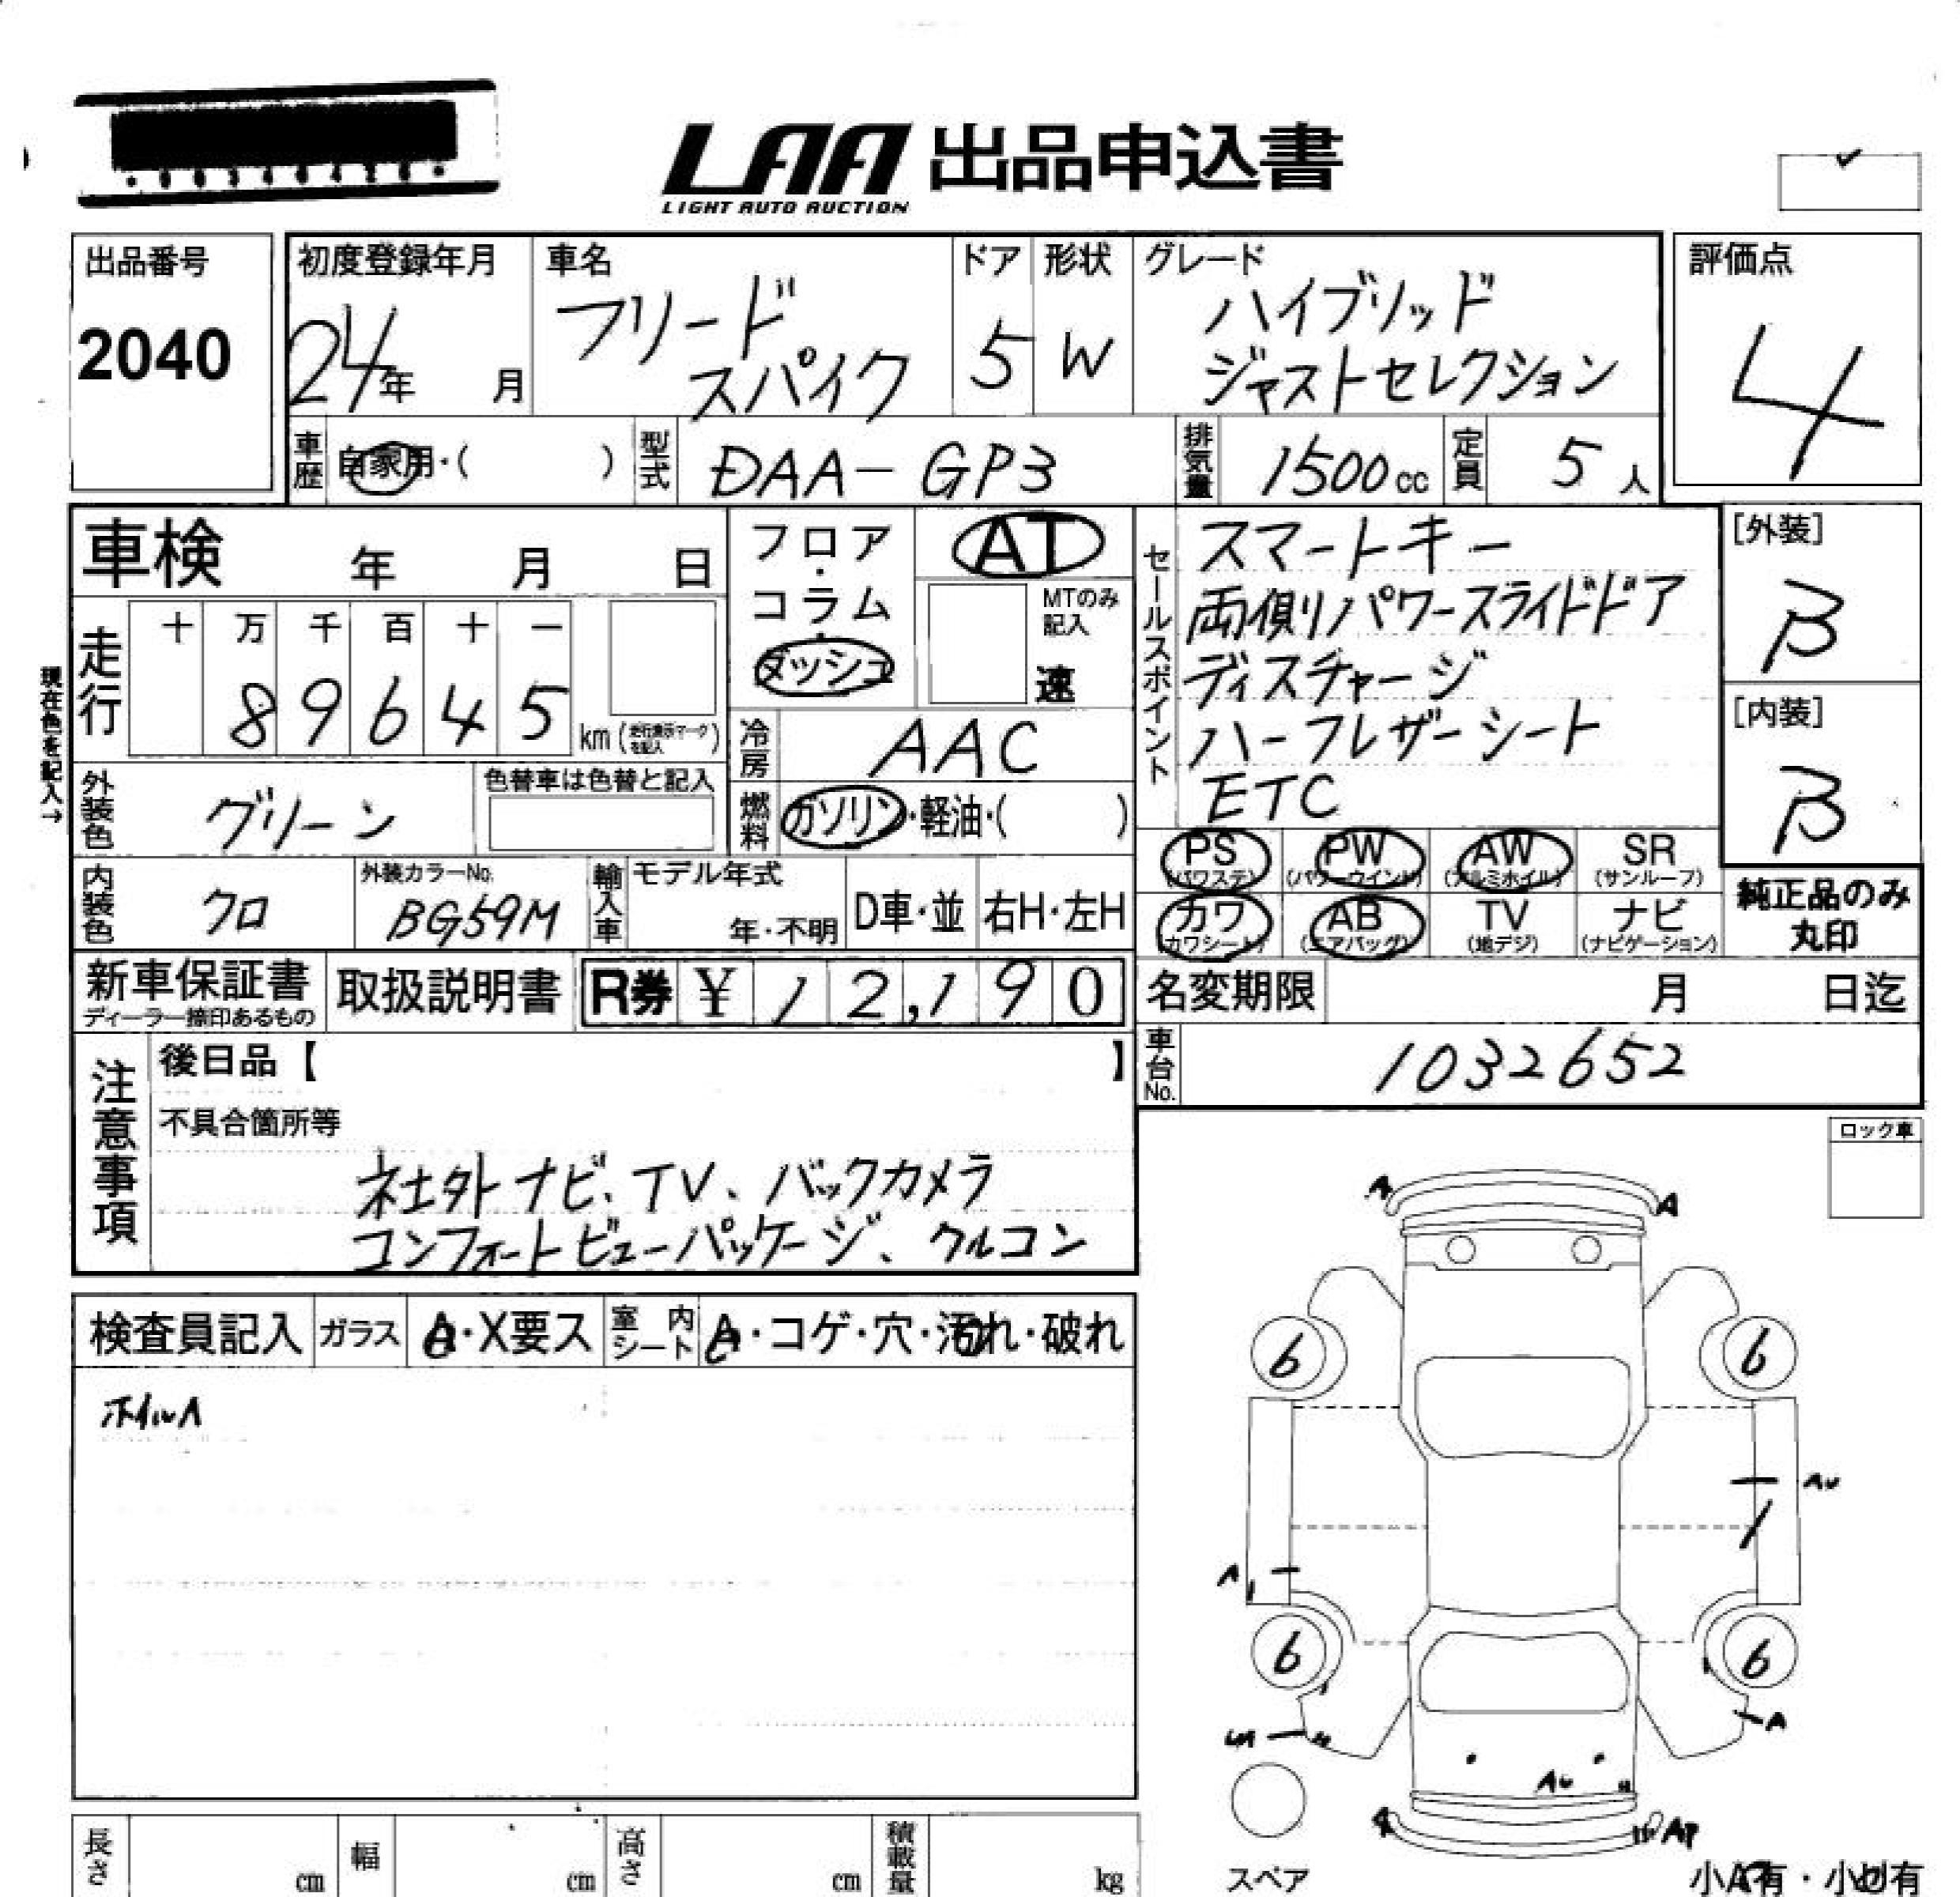 LAA 出品申込書
LIGHT AUTO AUCTION
出品番号
2040
初度登録年月
24年 月
車名
フリード
スパイク
ドア
5
形状
W
グレード
ハイブリッド
ジャストセレクション
評価点
4
車歴 自家用・( )
型式 DAA-GP3
排気量 1500cc
定員 5人
車検 年 月 日
フロア・コラム・ダッシュ
AT
MTのみ記入
速
セールスポイント
スマートキー
両側パワースライドドア
ディスチャージ
ハーフレザーシート
ETC
[外装]
B
[内装]
B
現在色を記入→
走行
十 万 千 百 十 一
8 9 6 4 5 km
冷房 AAC
外装色 グリーン
色替車は色替と記入
燃料 ガソリン・軽油・( )
PS (パワステ) PW (パワーウインド) AW (アルミホイル) SR (サンルーフ)
カワ (カワシート) AB (エアバッグ) TV (地デジ) ナビ (ナビゲーション)
純正品のみ
丸印
内装色 クロ
外装カラーNo.
BG59M
輸入車
モデル年式
年・不明
D車・並
右H・左H
新車保証書
ディーラー捺印あるもの
取扱説明書
R券 ¥ 12,190
名変期限 月 日迄
車台No. 1032652
注意事項
後日品【 】
不具合箇所等
社外ナビ、TV、バックカメラ
コンフォートビューパッケージ、クルコン
ロック車
検査員記入
ガラス A・X要ス
室内シート A・コゲ・穴・汚れ・破れ
ホイルA
A A
6 6
AU
A
6 6
A
AU
A AP
スペア
小A有・小U有
長さ cm
幅 cm
高さ cm
積載量 kg